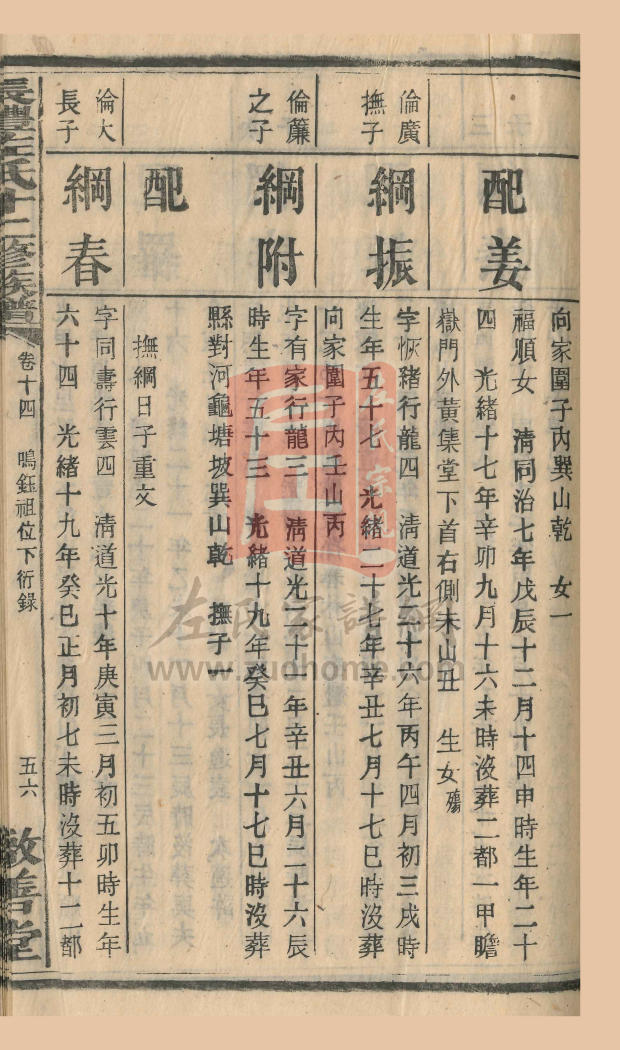 向家圍子內巽山乾　女一
配姜
福順女　清同治七年戊辰十二月十四申時生年二十
四　光緒十七年辛卯九月十六未時沒葬二都一甲瞻
嶽門外黃集堂下首右側未山丑　生女殤
倫廣
撫子
綱振
字恢緒行龍四　清道光二十六年丙午四月初三戌時
生年五十七　光緒二十七年辛丑七月十七巳時沒葬
向家圍子內壬山丙
倫簾
之子
綱附
字有家行龍三　清道光二十一年辛丑六月二十六辰
時生年五十三　光緒十九年癸巳七月十七巳時沒葬
縣對河龜塘坡巽山乾　撫子一
配
撫綱日子重文
倫大
長子
綱春
字同壽行雲四　清道光十年庚寅三月初五卯時生年
六十四　光緒十九年癸巳正月初七未時沒葬十二都
左氏十二修族譜
卷十四　鳴鈺祖位下衍錄
五六
敦善堂
左氏家譜網
www.zuohome.com